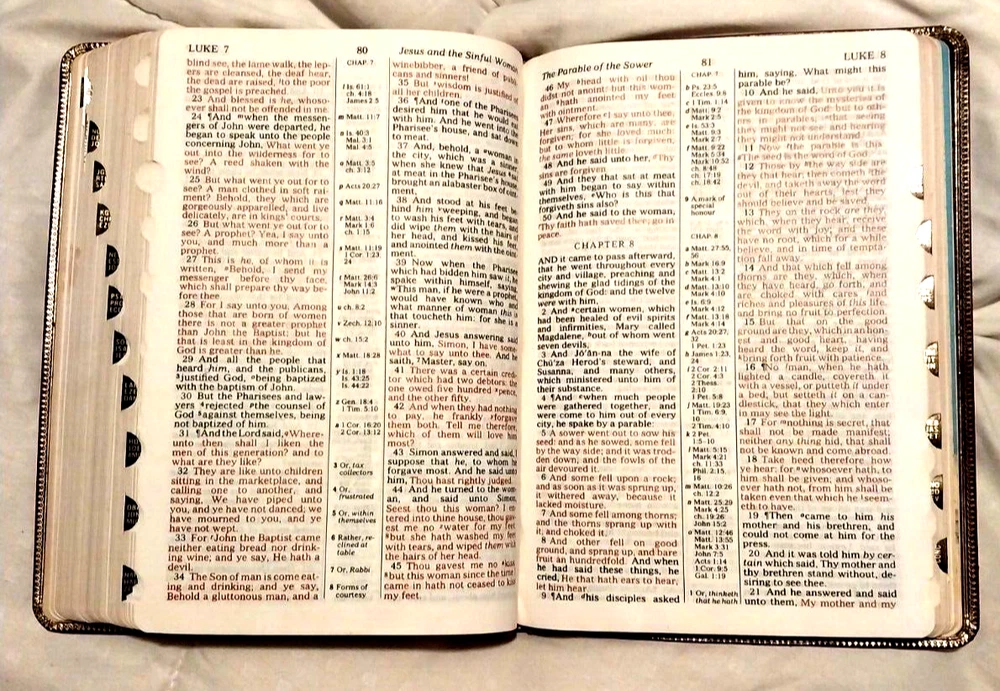 LUKE 7
80
Jesus and the Sinful Woman
blind see, the lame walk, the lep-
ers are cleansed, the deaf hear,
the dead are raised, to the poor
the gospel is preached.
23 And blessed is he, whoso-
ever shall not be offended in me.
24 ¶And when the messen-
gers of John were departed, he
began to speak unto the people
concerning John, What went ye
out into the wilderness for to
see? A reed shaken with the
wind?
25 But what went ye out for to
see? A man clothed in soft rai-
ment? Behold, they which are
gorgeously apparelled, and live
delicately, are in kings' courts.
26 But what went ye out for to
see? A prophet? Yea, I say unto
you, and much more than a
prophet.
27 This is he, of whom it is
written, Behold, I send my
messenger before thy face,
which shall prepare thy way be-
fore thee.
28 For I say unto you, Among
those that are born of women
there is not a greater prophet
than John the Baptist: but he
that is least in the kingdom of
God is greater than he.
29 And all the people that
heard him, and the publicans,
justified God, being baptized
with the baptism of John.
30 But the Pharisees and law-
yers rejected the counsel of
God against themselves, being
not baptized of him.
31 ¶And the Lord said, Where-
unto then shall I liken the
men of this generation? and to
what are they like?
32 They are like unto children
sitting in the marketplace, and
calling one to another, and
saying, We have piped unto
you, and ye have not danced; we
have mourned to you, and ye
have not wept.
33 For John the Baptist came
neither eating bread nor drink-
ing wine; and ye say, He hath a
devil.
34 The Son of man is come eat-
ing and drinking; and ye say,
Behold a gluttonous man, and a
CHAP. 7
l Is. 61:1
ch. 4:18
James 2:5
m Matt. 11:7
n Is. 40:3
Mal. 3:1
Mal. 4:5
o Matt. 3:5
ch. 3:12
p Acts 20:27
q Matt. 11:16
r Matt. 3:4
Mark 1:6
ch. 1:15
s Matt. 11:19
1 Cor. 1:23,
24
t Matt. 26:6
Mark 14:3
John 11:2
u ch. 8:2
v Zech. 12:10
w ch. 15:2
x Matt. 18:28
y Is. 1:18
Is. 43:25
Is. 44:22
z Gen. 18:4
1 Tim. 5:10
a 1 Cor. 16:20
2 Cor. 13:12
3 Or, tax
collectors
4 Or,
frustrated
5 Or, within
themselves
6 Rather, re-
clined at
table
7 Or, Rabbi
8 Forms of
courtesy
winebibber, a friend of publi-
cans and sinners!
35 But wisdom is justified of
all her children.
36 ¶And one of the Pharisees
desired him that he would eat
with him. And he went into the
Pharisee's house, and sat down
to meat.
37 And, behold, a woman in
the city, which was a sinner,
when she knew that Jesus sat
at meat in the Pharisee's house,
brought an alabaster box of oint-
ment,
38 And stood at his feet be-
hind him weeping, and began
to wash his feet with tears, and
did wipe them with the hairs of
her head, and kissed his feet,
and anointed them with the oint-
ment.
39 Now when the Pharisee
which had bidden him saw it, he
spake within himself, saying,
This man, if he were a prophet,
would have known who and
what manner of woman this is
that toucheth him: for she is a
sinner.
40 And Jesus answering said
unto him, Simon, I have some-
what to say unto thee. And he
saith, 7Master, say on.
41 There was a certain cred-
itor which had two debtors: the
one owed five hundred pence,
and the other fifty.
42 And when they had nothing
to pay, he frankly forgave
them both. Tell me therefore,
which of them will love him
most?
43 Simon answered and said, I
suppose that he, to whom he
forgave most. And he said unto
him, Thou hast rightly judged.
44 And he turned to the wom-
an, and said unto Simon,
Seest thou this woman? I en-
tered into thine house, thou gav-
est me no water for my feet:
but she hath washed my feet
with tears, and wiped them with
the hairs of her head.
45 Thou gavest me no kiss:
but this woman since the time I
came in hath not ceased to kiss
my feet.
The Parable of the Sower
81
LUKE 8
46 My head with oil thou
didst not anoint: but this wom-
an hath anointed my feet
with ointment.
47 Wherefore I say unto thee,
Her sins, which are many, are
forgiven; for she loved much:
but to whom little is forgiven,
the same loveth little.
48 And he said unto her, Thy
sins are forgiven.
49 And they that sat at meat
with him began to say within
themselves, Who is this that
forgiveth sins also?
50 And he said to the woman,
Thy faith hath saved thee; go in
peace.
CHAPTER 8
AND it came to pass afterward,
that he went throughout every
city and village, preaching and
shewing the glad tidings of the
kingdom of God: and the twelve
were with him,
2 And certain women, which
had been healed of evil spirits
and infirmities, Mary called
Magdalene, out of whom went
seven devils,
3 And Jo-an´na the wife of
Chu´za Herod's steward, and
Susanna, and many others,
which ministered unto him of
their substance.
4 ¶And when much people
were gathered together, and
were come to him out of every
city, he spake by a parable:
5 A sower went out to sow his
seed: and as he sowed, some fell
by the way side; and it was trod-
den down, and the fowls of the
air devoured it.
6 And some fell upon a rock;
and as soon as it was sprung up,
it withered away, because it
lacked moisture.
7 And some fell among thorns;
and the thorns sprang up with
it, and choked it.
8 And other fell on good
ground, and sprang up, and bare
fruit an hundredfold. And when
he had said these things, he
cried, He that hath ears to hear,
let him hear.
9 ¶And his disciples asked
CHAP. 7
b Ps. 23:5
Eccles. 9:8
c 1 Tim. 1:14
d Matt. 9:2
Mark 2:5
e Is. 53:3
Matt. 9:3
Mark 2:7
f Matt. 9:22
Mark 5:34
Mark 10:52
ch. 8:48
ch. 17:19
ch. 18:42
9 A mark of
special
honour
CHAP. 8
a Matt. 27:55,
56
b Mark 16:9
c Matt. 13:2
Mark 4:1
d Matt. 13:10
Mark 4:10
e Is. 6:9
Mark 4:12
f Matt. 13:18
Mark 4:14
g Acts 20:27,
32
1 Pet. 1:23
h James 1:23,
24
i 2 Cor. 2:11
2 Cor. 4:3
2 Thess.
2:10
1 Pet. 5:8
j Matt. 19:23
1 Tim. 6:9,
10
2 Tim. 4:10
k 2 Pet.
1:5-10
l Matt. 5:15
Mark 4:21
ch. 11:33
Phil. 2:15,
16
m Matt. 10:26
ch. 12:2
n Matt. 25:29
Mark 4:25
ch. 19:26
John 15:2
o Matt. 12:46
Matt. 13:55
Mark 3:31
John 7:5
Acts 1:14
1 Cor. 9:5
Gal. 1:19
1 Or, thinketh
that he hath
him, saying, What might this
parable be?
10 And he said, Unto you it is
given to know the mysteries of
the kingdom of God: but to oth-
ers in parables; that seeing
they might not see, and hearing
they might not understand.
11 Now the parable is this:
The seed is the word of God.
12 Those by the way side are
they that hear; then cometh the
devil, and taketh away the word
out of their hearts, lest they
should believe and be saved.
13 They on the rock are they,
which, when they hear, receive
the word with joy; and these
have no root, which for a while
believe, and in time of tempta-
tion fall away.
14 And that which fell among
thorns are they, which, when
they have heard, go forth, and
are choked with cares and
riches and pleasures of this life,
and bring no fruit to perfection.
15 But that on the good
ground are they, which in an hon-
est and good heart, having
heard the word, keep it, and
bring forth fruit with patience.
16 ¶No man, when he hath
lighted a candle, covereth it
with a vessel, or putteth it under
a bed; but setteth it on a can-
dlestick, that they which enter
in may see the light.
17 For nothing is secret, that
shall not be made manifest;
neither any thing hid, that shall
not be known and come abroad.
18 Take heed therefore how
ye hear: for whosoever hath, to
him shall be given; and whoso-
ever hath not, from him shall be
taken even that which he seem-
eth to have.
19 ¶Then came to him his
mother and his brethren, and
could not come at him for the
press.
20 And it was told him by cer-
tain which said, Thy mother and
thy brethren stand without, de-
siring to see thee.
21 And he answered and said
unto them, My mother and my